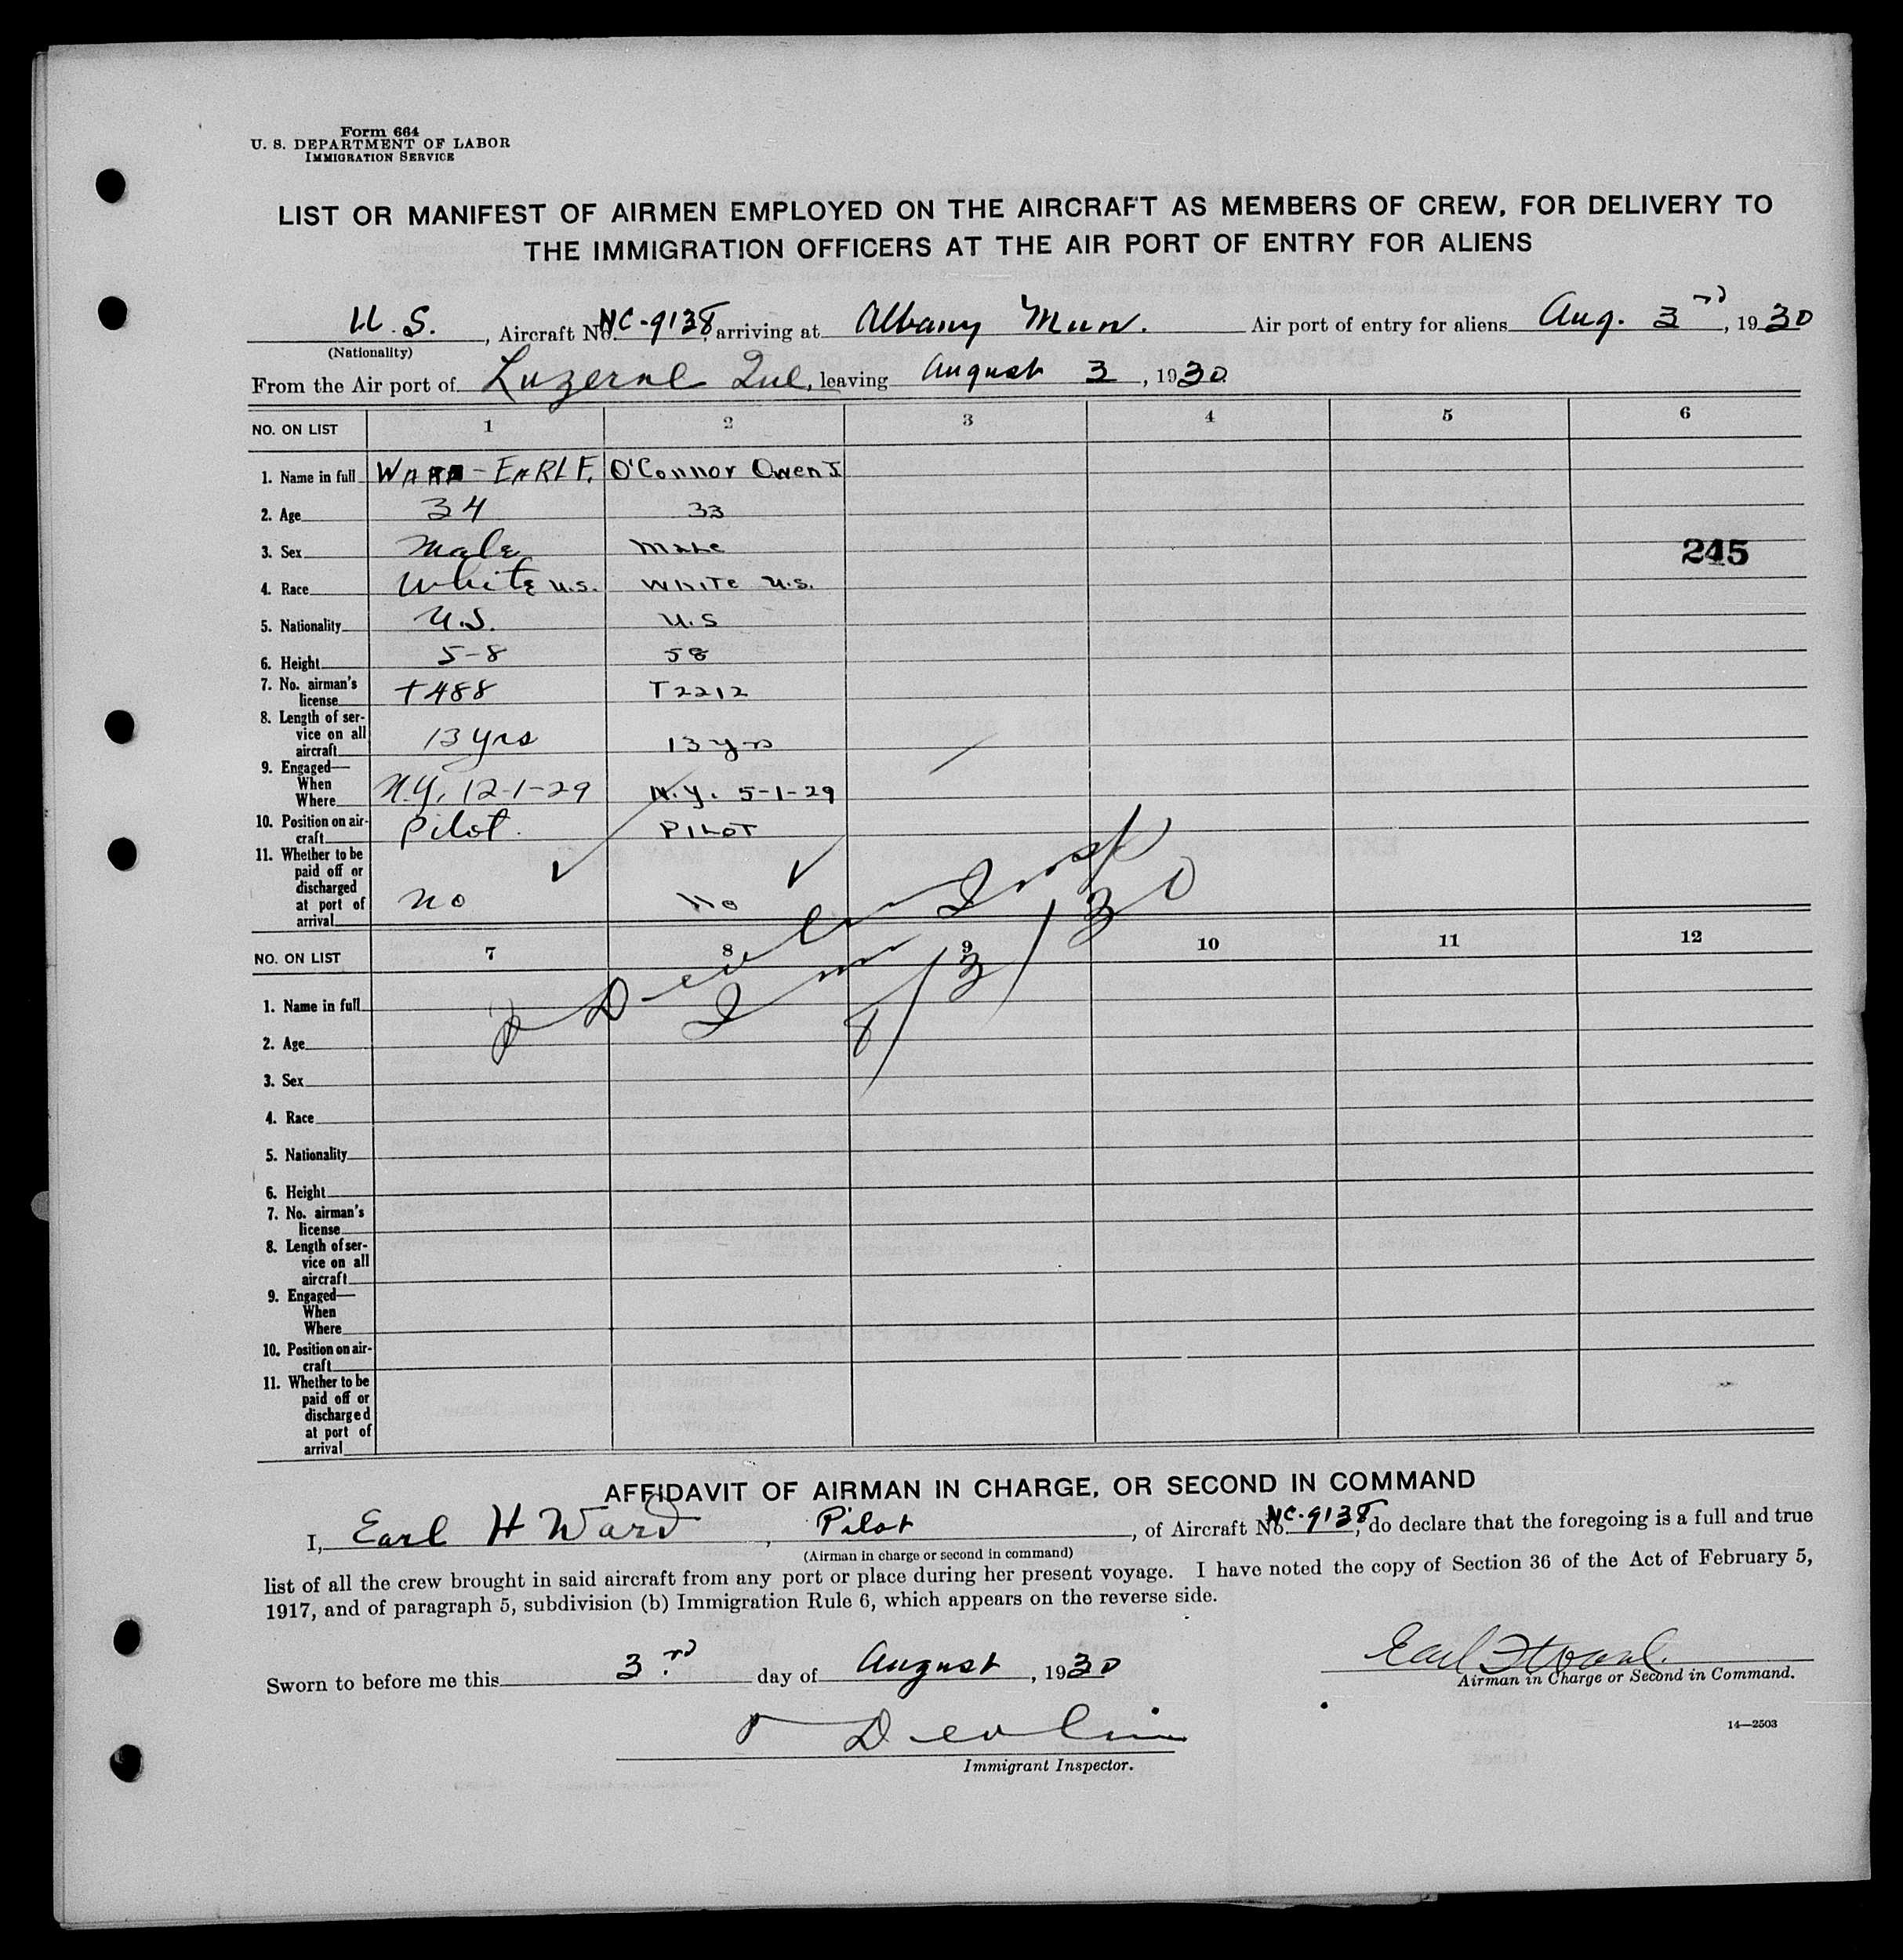 Form 664
U. S. DEPARTMENT OF LABOR
IMMIGRATION SERVICE
LIST OR MANIFEST OF AIRMEN EMPLOYED ON THE AIRCRAFT AS MEMBERS OF CREW, FOR DELIVERY TO
THE IMMIGRATION OFFICERS AT THE AIR PORT OF ENTRY FOR ALIENS
U. S., Aircraft No. NC-9138, arriving at Albany Mun. Air port of entry for aliens Aug. 3rd, 1930
(Nationality)
From the Air port of Luzerne Que, leaving August 3, 1930
NO. ON LIST 1 2 3 4 5 6
1. Name in full WARD - EARL F. O'Connor Owen J
2. Age 34 33
3. Sex Male Male
245
4. Race White U.S. White U.S.
5. Nationality U.S. U.S
6. Height 5-8 58
7. No. airman's
license T488 T2212
8. Length of ser-
vice on all
aircraft 13 yrs 13 yrs
9. Engaged—
When
Where N.Y. 12-1-29 N.Y. 5-1-29
10. Position on air-
craft Pilot. PILOT
11. Whether to be
paid off or
discharged
at port of
arrival no No
Devlin
Imm Insp
8/3/30
NO. ON LIST 7 8 9 10 11 12
1. Name in full
2. Age
3. Sex
4. Race
5. Nationality
6. Height
7. No. airman's
license
8. Length of ser-
vice on all
aircraft
9. Engaged—
When
Where
10. Position on air-
craft
11. Whether to be
paid off or
discharged
at port of
arrival
AFFIDAVIT OF AIRMAN IN CHARGE, OR SECOND IN COMMAND
I, Earl H Ward, Pilot, of Aircraft No. NC-9138, do declare that the foregoing is a full and true
(Airman in charge or second in command)
list of all the crew brought in said aircraft from any port or place during her present voyage. I have noted the copy of Section 36 of the Act of February 5,
1917, and of paragraph 5, subdivision (b) Immigration Rule 6, which appears on the reverse side.
Earl F Ward.
Sworn to before me this 3rd day of August, 1930
Airman in Charge or Second in Command.
Devlin
14—2503
Immigrant Inspector.